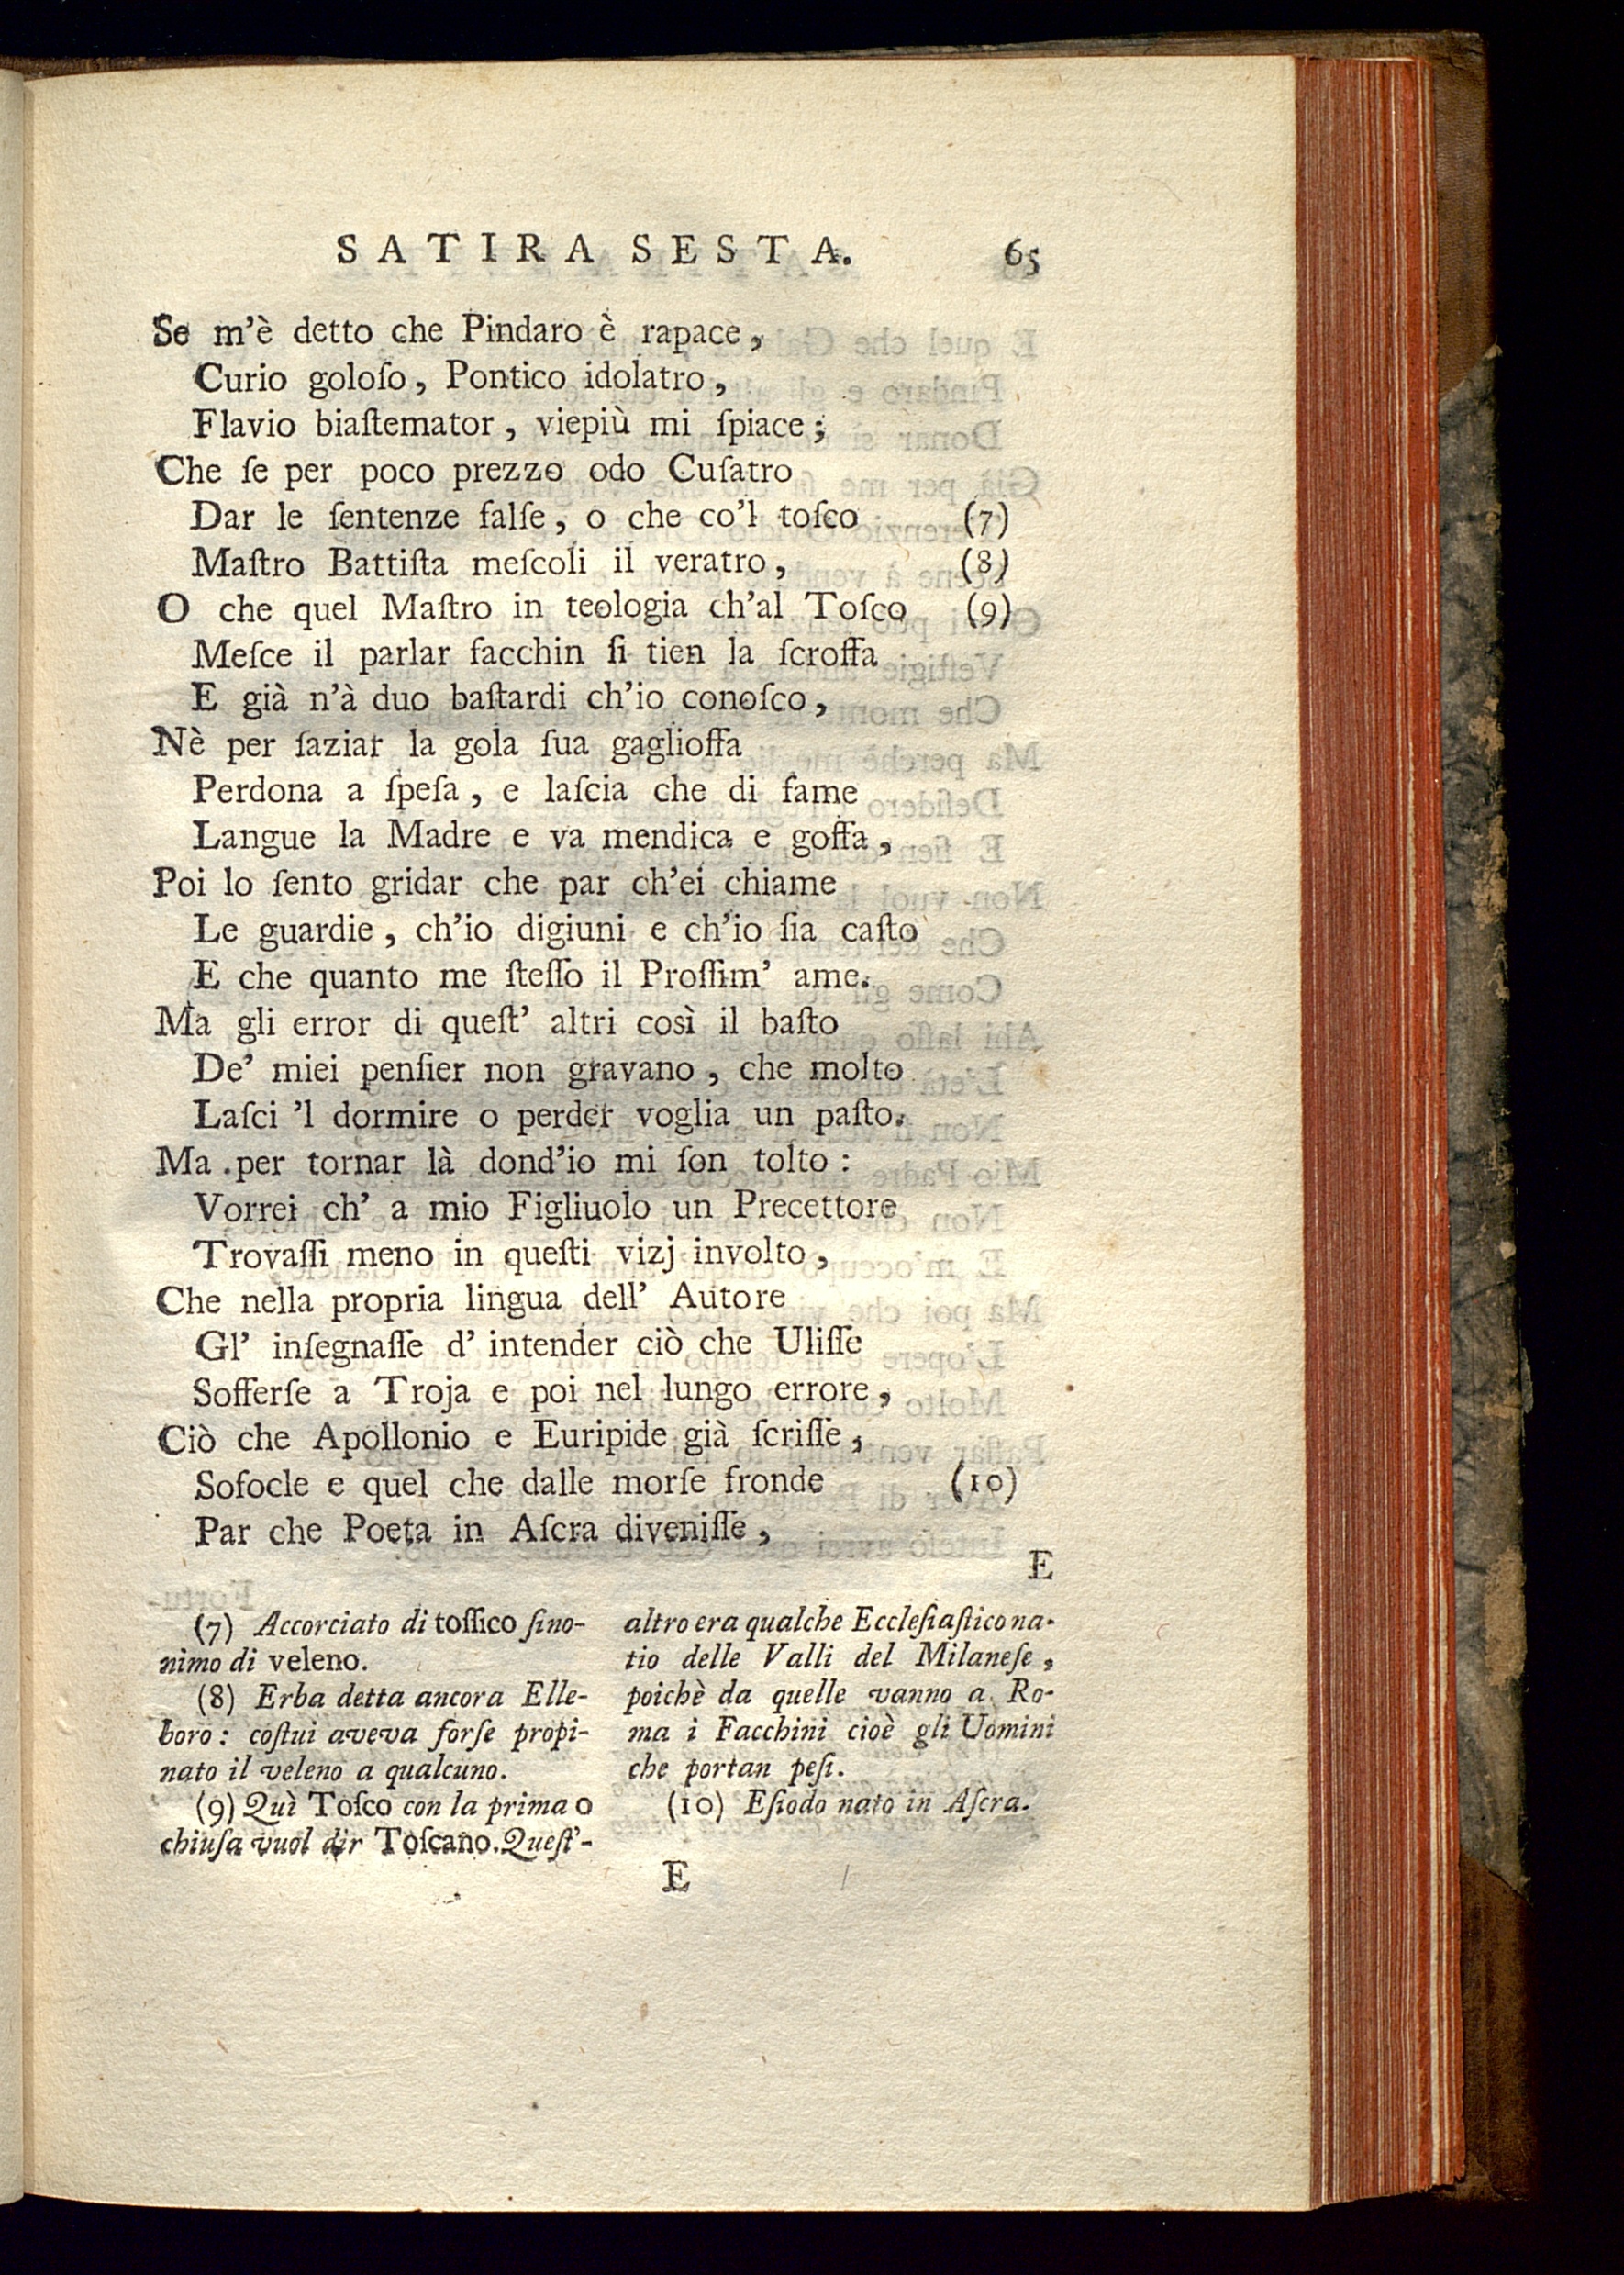 SATIRA SESTA. 65
Se m'è detto che Pindaro è rapace,
Curio goloſo, Pontico idolatro,
Flavio biaſtemator, viepiù mi ſpiace;
Che ſe per poco prezzo odo Cuſatro
Dar le ſentenze falſe, o che co'l toſco (7)
Maſtro Battiſta meſcoli il veratro, (8)
O che quel Maſtro in teologia ch'al Toſco (9)
Meſce il parlar facchin ſi tien la ſcroffa
E già n'à duo baſtardi ch'io conoſco,
Nè per ſaziar la gola ſua gaglioffa
Perdona a ſpeſa, e laſcia che di fame
Langue la Madre e va mendica e goffa,
Poi lo ſento gridar che par ch'ei chiame
Le guardie, ch'io digiuni e ch'io ſia caſto
E che quanto me ſteſſo il Proſſim' ame.
Ma gli error di queſt' altri così il baſto
De' miei penſier non gravano, che molto
Laſci 'l dormire o perder voglia un paſto.
Ma per tornar là dond'io mi ſon tolto:
Vorrei ch' a mio Figliuolo un Precettore
Trovaſſi meno in queſti vizj involto,
Che nella propria lingua dell' Autore
Gl' inſegnaſſe d' intender ciò che Uliſſe
Sofferſe a Troja e poi nel lungo errore,
Ciò che Apollonio e Euripide già ſcriſſe,
Sofocle e quel che dalle morſe fronde (10)
Par che Poeta in Aſcra diveniſſe,
E
(7) Accorciato di toſſico ſino-
nimo di veleno.
(8) Erba detta ancora Elle-
boro: coſtui aveva forſe propi-
nato il veleno a qualcuno.
(9) Quì Toſco con la prima o
chiuſa vuol dir Toſcano. Queſt'-
altro era qualche Eccleſiaſtico na-
tio delle Valli del Milaneſe,
poichè da quelle vanno a Ro-
ma i Facchini cioè gli Uomini
che portan peſi.
(10) Eſiodo nato in Aſcra.
E